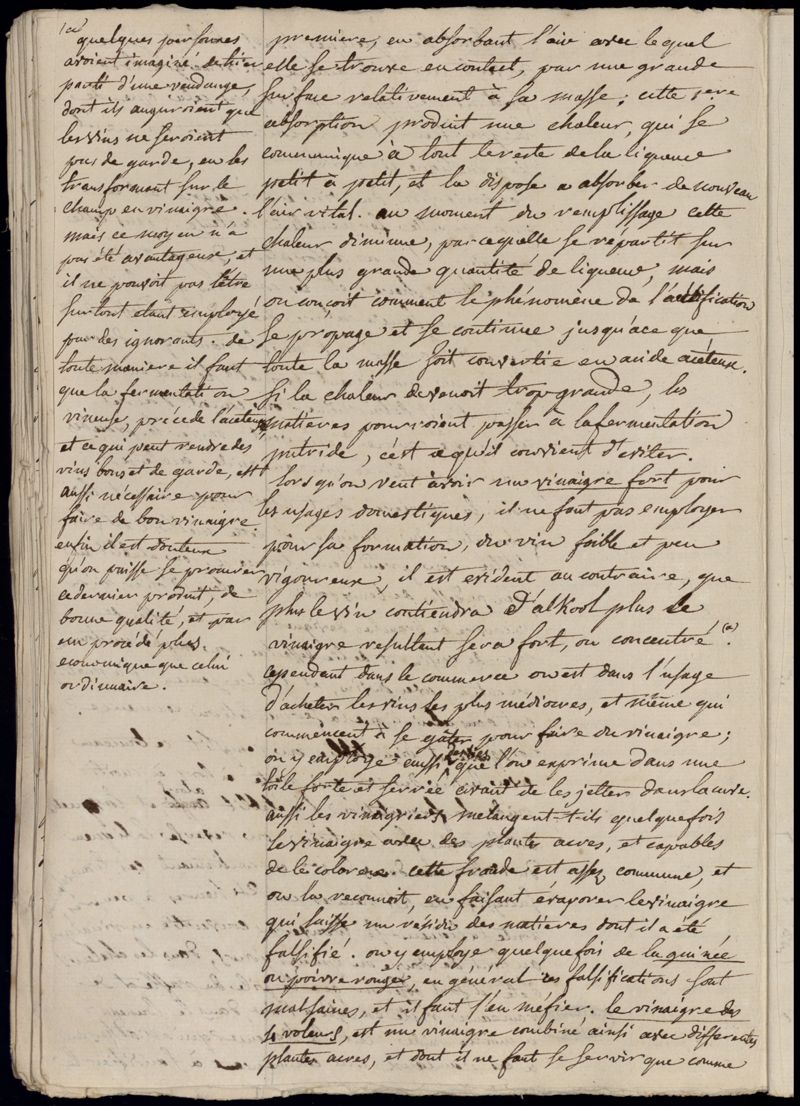 (a)
quelques personnes
avoient imaginé de tirer
parti d'une vendange,
dont ils auguroient que
les vins ne seroient
pas de garde, en les
transformant sur le
champ en vinaigre.
mais ce moyen n'a
pas été avantageux, et
il ne pouvoit pas l'être
surtout etant employé
par des ignorants. de
toute maniere il faut
que la fermentation
vineuse précede l'aceteuse
et ce qui peut rendre des
vins bons et de garde, est
aussi nécessaire pour
faire de bon vinaigre.
enfin il est douteux
qu'on puisse se procurer
ce dernier produit, de
bonne qualité, et par
un procédé plus
economique que celui
ordinaire.
premiere, en absorbant l'air avec lequel
elle se trouve en contact, par une grande
surface relativement à sa masse; cette 1ere
absorption produit une chaleur, qui se
communique à tout le reste de la liqueur
petit à petit, et la dispose a absorber de nouveau
l'air vital. au moment du remplissage cette
chaleur diminue, parcequelle se repartit sur
une plus grande quantité de liqueur, mais
on conçoit comment le phénomène de l'acétification
se propage et se continue jusqu'àce que
toute la masse soit convertie en acide acéteux.
si la chaleur devenoit trop grande, les
matieres pourroient passer à la fermentation
putride, c'est ce qu'il convient d'eviter.
lorsqu'on veut avoir un vinaigre fort pour
les usages domestiques, il ne faut pas employer
pour sa formation, du vin foible et peu
vigoureux, il est evident au contraire, que
plus le vin contiendra d'alkool plus le
vinaigre resultant sera fort, ou concentré (a).
cependant dans le commerce on est dans l'usage
d'acheter les vins les plus médiocres, et même qui
commencent à se gâter pour faire du vinaigre;
on y employe aussi des lies que l'on exprime dans une
toile forte et serrée avant de les jetter dans la cuve.
aussi les vinaigriers mélangent-t-ils quelquefois
le vinaigre avec des plantes acres, et capables
de le colorer. cette fraude est assez commune, et
on la reconnoit, en faisant évaporer le vinaigre
qui laisse un résidu des matieres dont il a été
falsifié. on y employe quelquefois de la guinée
ou poivre rouge, en général ces falsifications sont
malsaines, et il faut s'en méfier. le vinaigre des
4 voleurs, est un vinaigre combiné ainsi avec differentes
plantes acres, et dont il ne faut se servir que comme